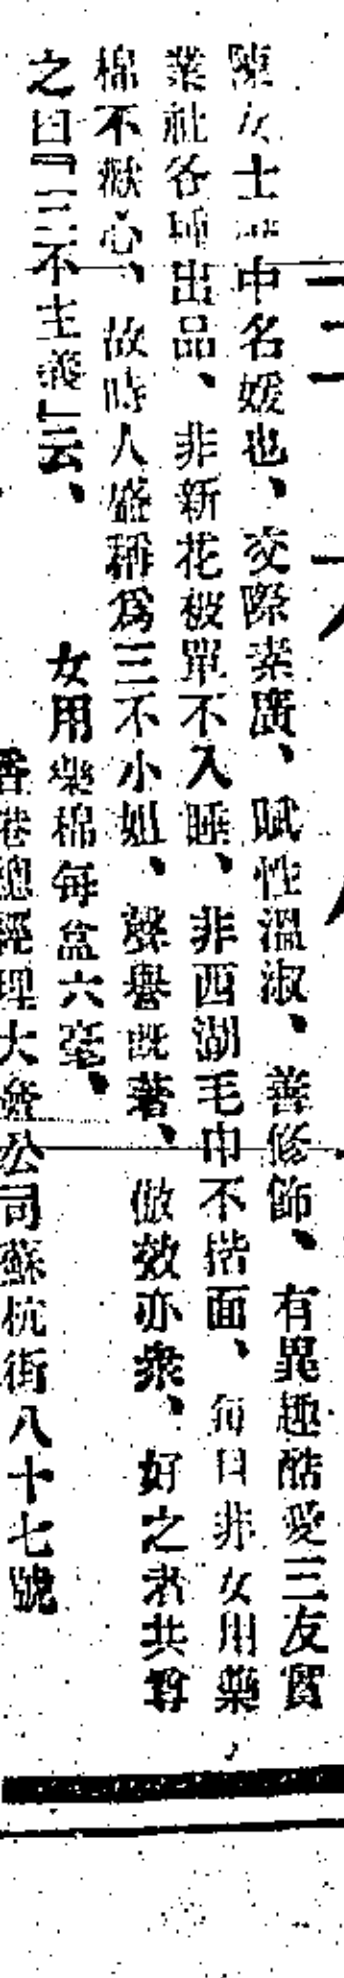 陳女士⋯中名媛也、交際素廣、賦性溫淑、善修飾、有異趣酷愛三友實
業社各種出品、非新花被單不入睡、非西湖毛巾不揩面、每日非女用藥
棉不歡心、故時人盛稱為三不小姐、聲譽既著、倣效亦衆、好之者共尊
之曰『三不主義』云、
女用藥棉每盒六毫、
香港總經理大⋯公司蘇杭街八十七號